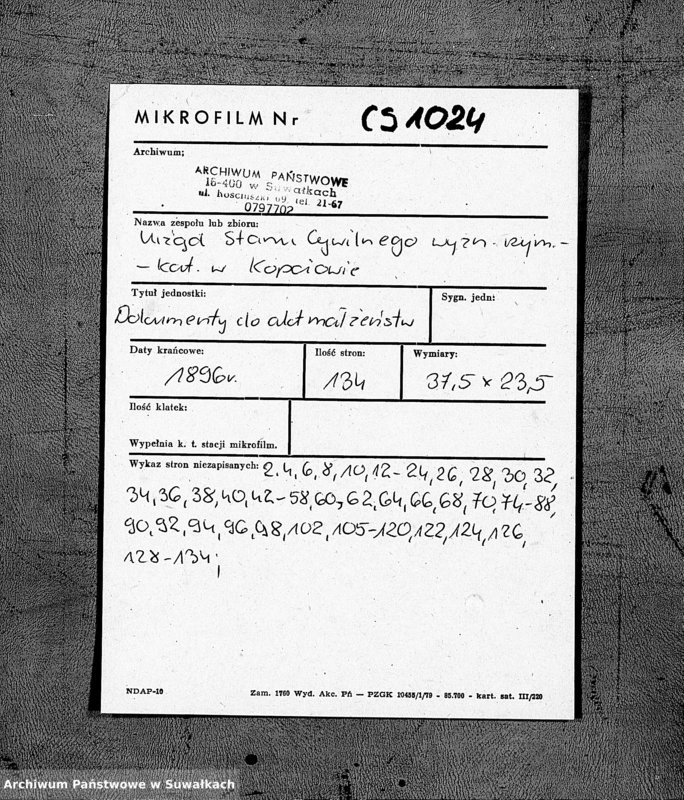 MIKROFILM Nr CS 1024
Archiwum;
ARCHIWUM PAŃSTWOWE
16-400 w Suwałkach
ul. Kościuszki 69, tel. 21-67
0797702
Nazwa zespołu lub zbioru:
Urząd Stanu Cywilnego wyzn. rzym.-
- kat. w Kopciowie
Tytuł jednostki: Sygn. jedn:
Dokumenty do akt małżeństw
Daty krańcowe: Ilość stron: Wymiary:
1896r. 134 37,5 x 23,5
Ilość klatek:
Wypełnia k. t. stacji mikrofilm.
Wykaz stron niezapisanych: 2,4,6,8,10,12-24,26,28,30,32,
34,36,38,40,42-58,60,62,64,66,68,70,74-88,
90,92,94,96,98,102,105-120,122,124,126,
128-134;
NDAP-10 Zam. 1760 Wyd. Akc. Pń — PZGK 10455/1/79 - 85.700 - kart. sat. III/220
Archiwum Państwowe w Suwałkach